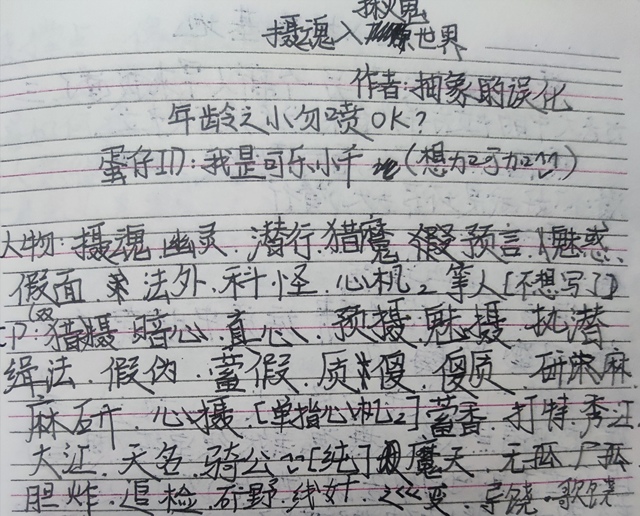 揪鬼
摄魂入原世界
作者:抽象的误化
年龄之小勿喷OK?
蛋仔ID:我是可乐小千(想加可加)
人物:摄魂 幽灵.潜行猎魔 假 预言.魅惑.
假面 法外.科怪.心机2 等人[不想写了]
CP:猎摄 暗心.真心.预摄.魅摄.执潜
缉法.假伪.蓄假.质傻.傻质.研麻
麻研.心摄.[单指心机2]蓄香.打特.秀江.
大江.天名.骑公[纯]魔天.无孤 厂孤
胆炸.追检.矿野.线奸 变.导饶.歌饶